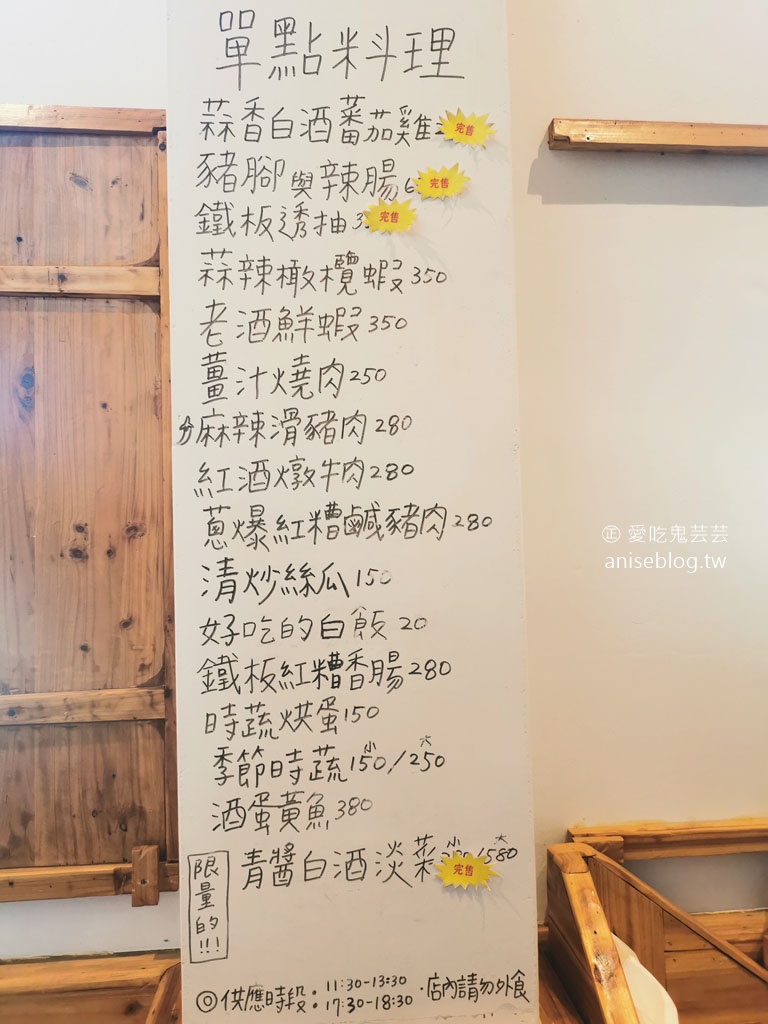 單點料理
蒜香白酒蕃茄雞 完售
豬腳與辣腸 6 完售
鐵板透抽 3 完售
蒜辣橄欖蝦 350
老酒鮮蝦 350
薑汁燒肉 250
麻辣滑豬肉 280
紅酒燉牛肉 280
蔥爆紅糟鹹豬肉 280
清炒絲瓜 150
好吃的白飯 20
鐵板紅糟香腸 280
時蔬烘蛋 150
季節時蔬 小150/大250
酒蛋黃魚 380
限量的!!! 青醬白酒淡菜 小 /大580 完售
◎供應時段: 11:30-13:30
17:30-18:30 ·店內請勿外食
愛吃鬼芸芸
aniseblog.tw